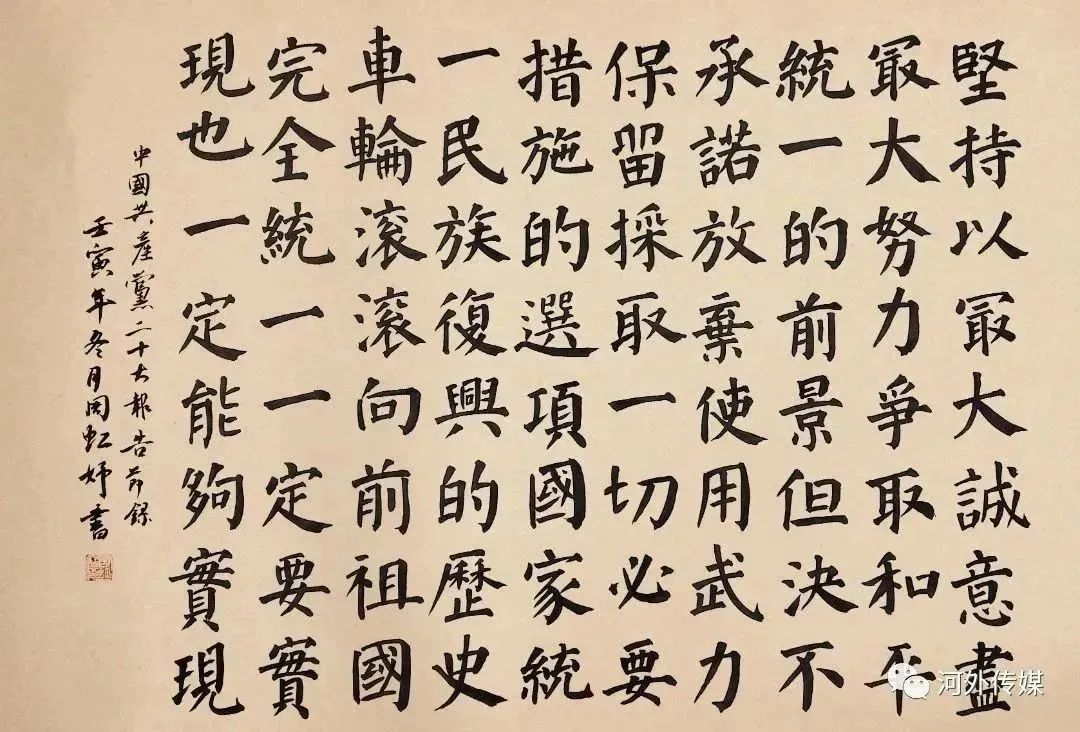 堅持以冣大誠意盡
冣大努力爭取和平
統一的前景但決不
承諾放棄使用武力
保留採取一切必要
措施的選項國家統
一民族復興的歷史
車輪滾滾向前祖國
完全統一一定要實
現也一定能夠實現
中國共產黨二十大報告節錄
壬寅年冬月周虹妤書
河外传媒